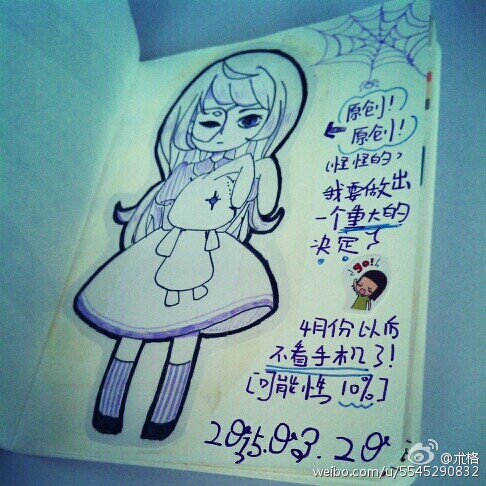 原创!
原创!
怪怪的,
我要做出
一个重大的
决定了
go!
4月份以后
不看手机了!
[可能性 10%]
2015.03.20
@术格
weibo.com/u/5545290832